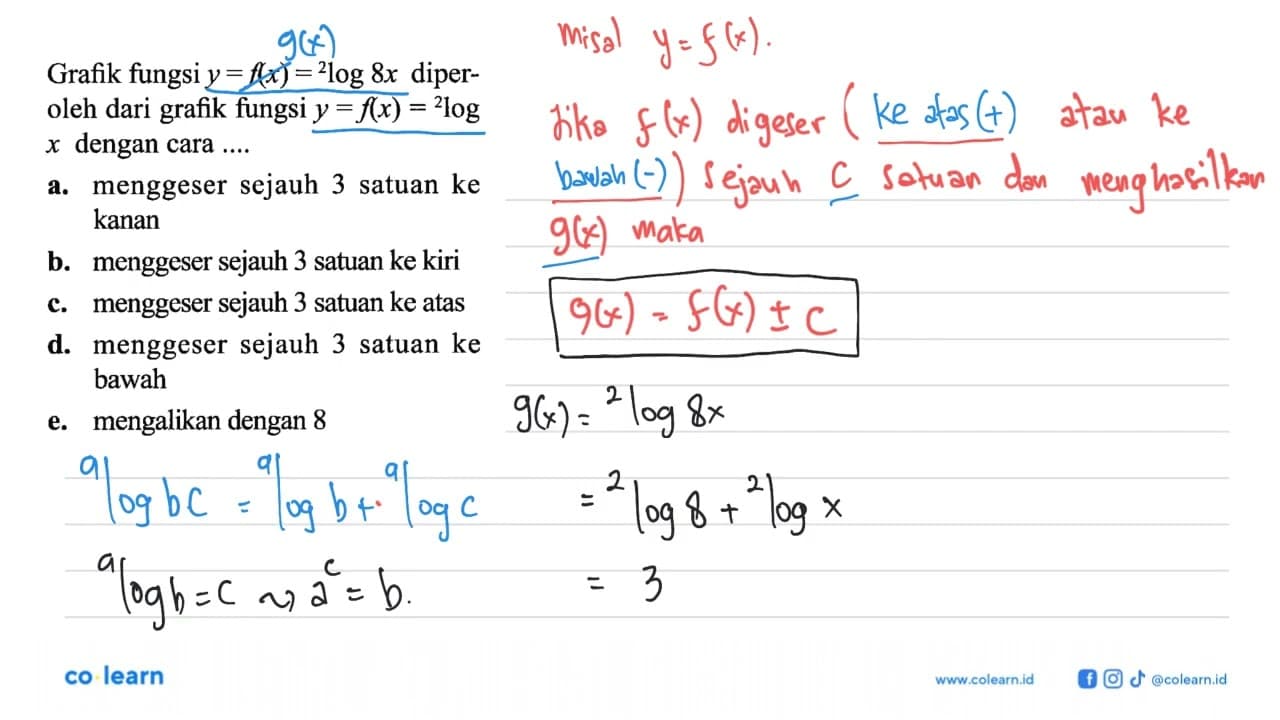 g(x)
Grafik fungsi y = f(x) = ²log 8x diper-
oleh dari grafik fungsi y = f(x) = ²log
x dengan cara ....
a. menggeser sejauh 3 satuan ke
kanan
b. menggeser sejauh 3 satuan ke kiri
c. menggeser sejauh 3 satuan ke atas
d. menggeser sejauh 3 satuan ke
bawah
e. mengalikan dengan 8
ᵃlog bc = ᵃlog b + ᵃlog c
ᵃlog b = c ~> aᶜ = b.
misal y = f(x).
Jika f(x) digeser (ke atas (+) atau ke
bawah (-)) sejauh c satuan dan menghasilkan
g(x) maka
g(x) = f(x) ± c
g(x) = ²log 8x
= ²log 8 + ²log x
= 3
co learn
www.colearn.id
@colearn.id